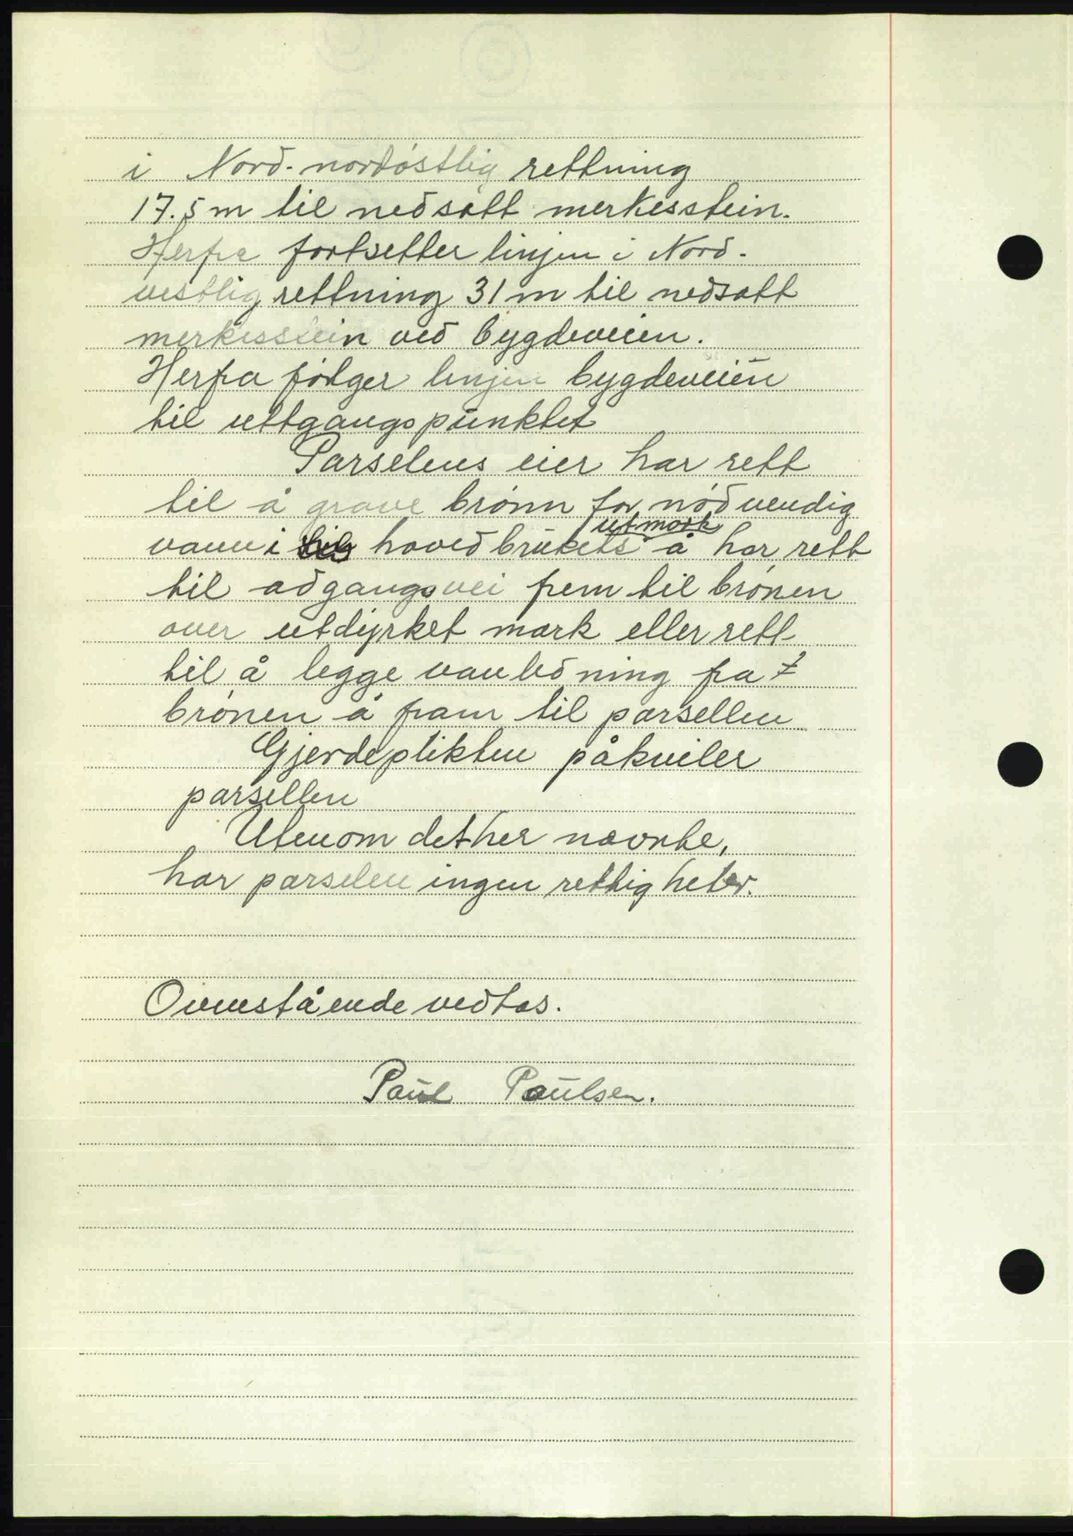 i Nord-nordøstlig rettning
17.5 m til nedsatt merkesstein.
Herfra fortsetter linjen i Nord-
vestlig rettning 31 m til nedsatt
merkesstein ved bygdeveien.
Herfra følger linjen bygdeveien
til uttgangspunktet
Parselens eier har rett
til å grave brønn for nødvendig
utmark
vann i hovedbrukets å har rett
til adgangsvei frem til brønen
over utdyrket mark eller rett
til å legge vanledning fra
brønen å fram til parsellen
Gjerdeplikten påkviler
parsellen
Utenom det her nævnte,
har parselen ingen rettigheter.
Ovenstående vedtas.
Paul Paulsen.